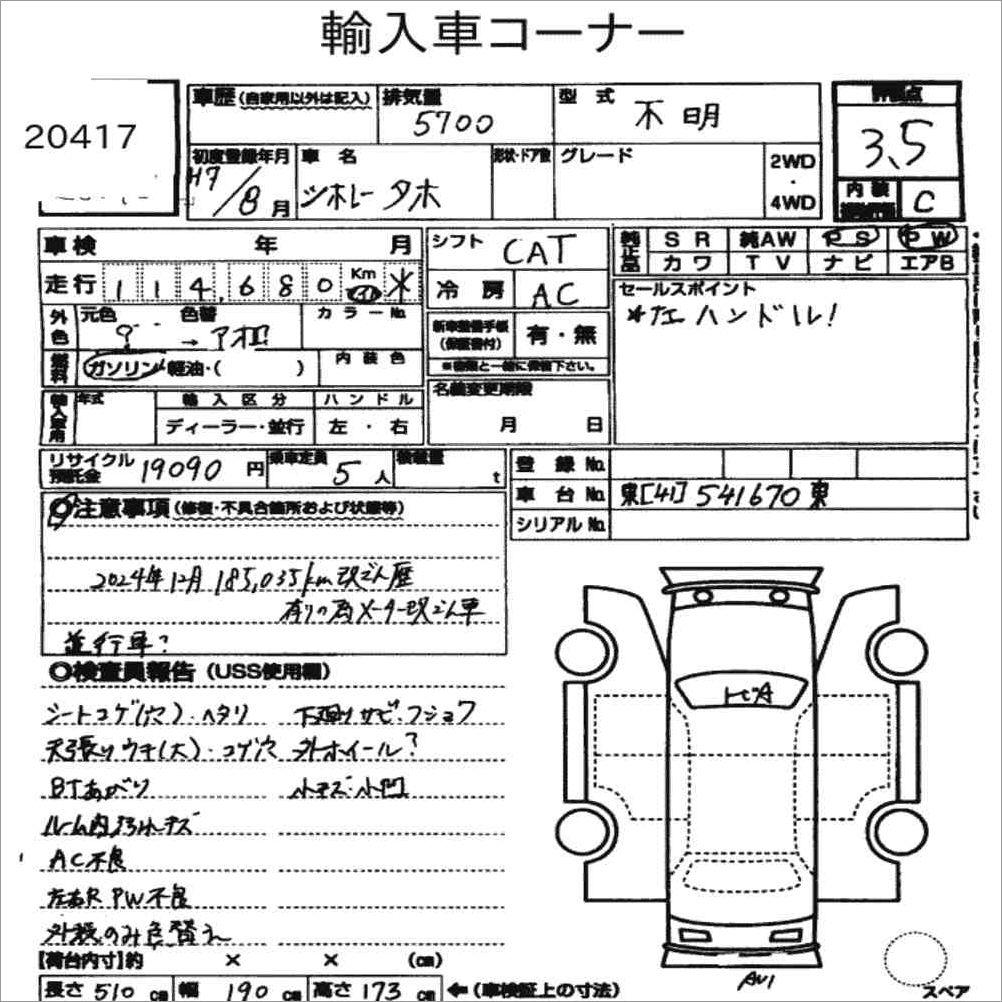 輸入車コーナー
20417
車歴(自家用以外は記入) 排気量 5700 型式 不明
評価点 3.5
初度登録年月 H7/8月 車名 シボレータホ 形状・ドア数 グレード 2WD・4WD
内装 C
車検 年 月 シフト CAT 純正品 SR 純AW PS PW
カワ TV ナビ エアB
走行 114,680 Km *
冷房 AC
セールスポイント
*左ハンドル!
外色 元色 ? 色替 → アオ カラーNo.
新車整備手帳(保証書付) 有・無
※書類と一緒に保管下さい。
燃料 ガソリン・軽油・( ) 内装色
名義変更期限 月 日
輸入車用 年式 輸入区分 ハンドル
ディーラー・並行 左・右
リサイクル預託金 19090円 乗車定員 5人 積載量 t
登録No.
車台No. 東[41]541670東
シリアルNo.
◎注意事項(修復・不具合箇所および状態等)
2024年12月 185,035km改ざん歴
有りの為メーター改ざん車
並行車?
◎検査員報告(USS使用欄)
シートコゲ(穴)・ヘタリ 下廻りサビ・フショク
天張りウキ(大)・コゲ穴 外ホイール?
BTあがり 小キズ・小凹
ルーム内汚れキズ
AC不良
左右R PW不良
外板のみ色替え
トビA
【荷台内寸】約 × × (cm)
長さ 510cm 幅 190cm 高さ 173cm ←(車検証上の寸法)
AU1
スペア